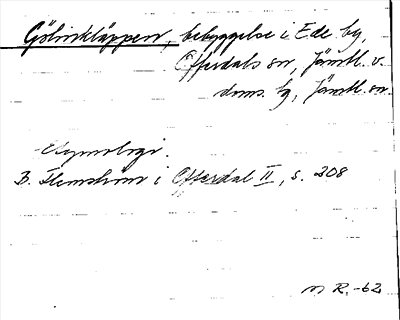 Gölinkläppen, bebyggelse i Ede by,
Offerdals sn, Jämtl. v.
doms. hg, Jämtl. sn.
Etymologi.
B. Flemström i Offerdal II, s. 208
R. -62